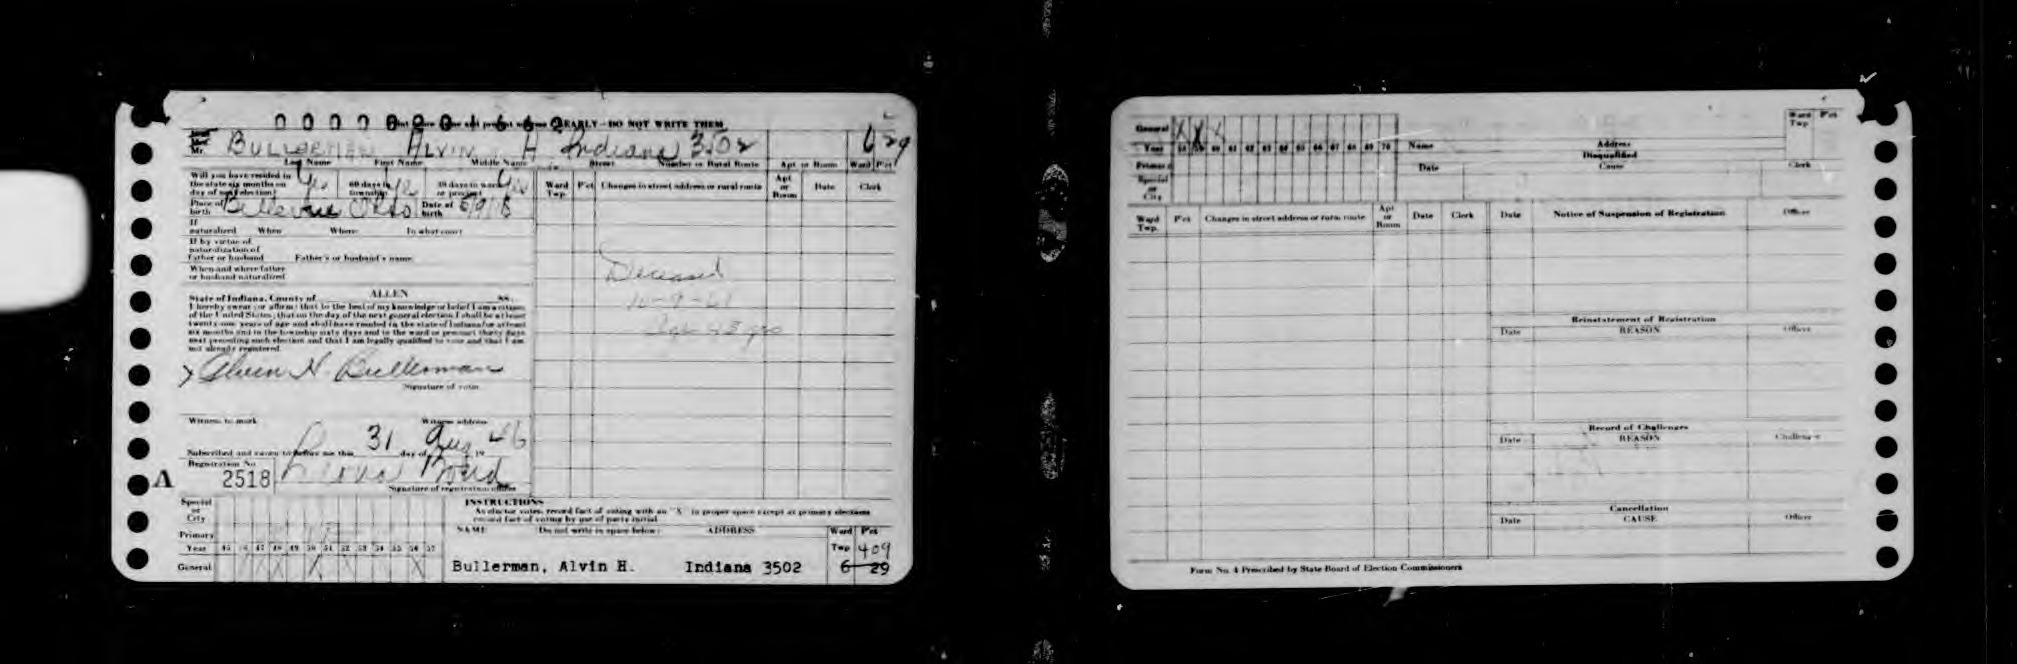 CLEARLY—DO NOT WRITE THEM
Mr. BULLERMAN ALVIN H Indiana 3502 6 29
Last Name First Name Middle Name Street Number or Rural Route Apt or Room Ward Pct
Will you have resided in
the state six months on
day of next election? Yes 60 days in township 30 days in ward or precinct Yes
Place of birth Bellevue Ohio Date of birth
Ward Twp Pct Changes in street address or rural route Apt or Room Date Clerk
If naturalized When Where In what court
If by virtue of
naturalization of
Father or husband Father's or husband's name
When and where father
or husband naturalized
State of Indiana, County of ALLEN ss:
I hereby swear (or affirm) that to the best of my knowledge or belief I am a citizen
of the United States; that on the day of the next general election I shall be at least
twenty-one years of age and shall have resided in the state of Indiana for at least
six months and in the township sixty days and in the ward or precinct thirty days
next preceding such election and that I am legally qualified to vote and that I am
not already registered.
Alvin H. Bullerman
Signature of voter
Deceased
10-9-61
Age 45 yrs
Witness to mark Witness address
Subscribed and sworn to before me this 31 day of Aug 19 46
Registration No
A 2518
Signature of registration officer
Special or City
Primary
Year 45 46 47 48 49 50 51 52 53 54 55 56 57
General
INSTRUCTIONS
As elector votes, record fact of voting with an "X" in proper space except at primary elections
record fact of voting by use of party initial.
NAME Do not write in space below: ADDRESS Ward Pct
Twp 409
Bullerman, Alvin H. Indiana 3502 6 29
General X X X
Year 58 59 60 61 62 63 64 65 66 67 68 69 70 Name Address Ward Twp Pct
Disqualified
Primary Date Cause Clerk
Special or City
Ward Twp. Pct Changes in street address or rural route Apt or Room Date Clerk Date Notice of Suspension of Registration Officer
Reinstatement of Registration
Date REASON Officer
Record of Challenges
Date REASON Challenger
Cancellation
Date CAUSE Officer
Form No. 4 Prescribed by State Board of Election Commissioners